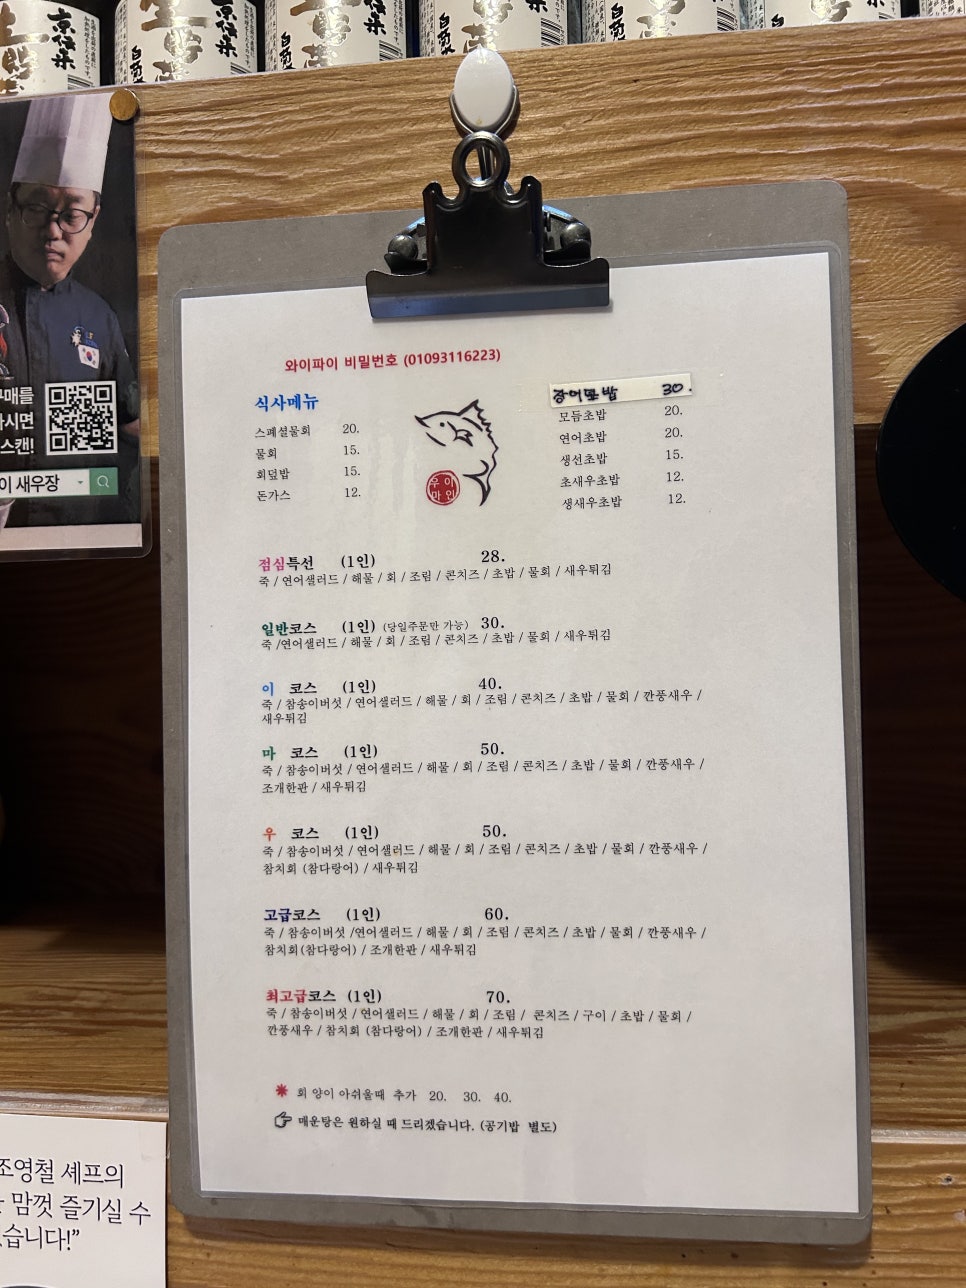 구매를
하시면
스캔!
이 새우장
와이파이 비밀번호 (01093116223)
식사메뉴
스페셜물회 20.
물회 15.
회덮밥 15.
돈가스 12.
우이
마인
30.
모듬초밥 20.
연어초밥 20.
생선초밥 15.
초새우초밥 12.
생새우초밥 12.
점심특선 (1인) 28.
죽 / 연어샐러드 / 해물 / 회 / 조림 / 콘치즈 / 초밥 / 물회 / 새우튀김
일반코스 (1인) (당일주문만 가능) 30.
죽 /연어샐러드 / 해물 / 회 / 조림 / 콘치즈 / 초밥 / 물회 / 새우튀김
이 코스 (1인) 40.
죽 / 참송이버섯 / 연어샐러드 / 해물 / 회 / 조림 / 콘치즈 / 초밥 / 물회 / 깐풍새우 /
새우튀김
마 코스 (1인) 50.
죽 / 참송이버섯 / 연어샐러드 / 해물 / 회 / 조림 / 콘치즈 / 초밥 / 물회 / 깐풍새우 /
조개한판 / 새우튀김
우 코스 (1인) 50.
죽 / 참송이버섯 / 연어샐러드 / 해물 / 회 / 조림 / 콘치즈 / 초밥 / 물회 / 깐풍새우 /
참치회 (참다랑어) / 새우튀김
고급코스 (1인) 60.
죽 / 참송이버섯 /연어샐러드 / 해물 / 회 / 조림 / 콘치즈 / 초밥 / 물회 / 깐풍새우 /
참치회(참다랑어) / 조개한판 / 새우튀김
최고급코스 (1인) 70.
죽 / 참송이버섯 / 연어샐러드 / 해물 / 회 / 조림 / 콘치즈 / 구이 / 초밥 / 물회 /
깐풍새우 / 참치회 (참다랑어) / 조개한판 / 새우튀김
회 양이 아쉬울때 추가 20. 30. 40.
매운탕은 원하실 때 드리겠습니다. (공기밥 별도)
조영철 셰프의
맘껏 즐기실 수
습니다!”